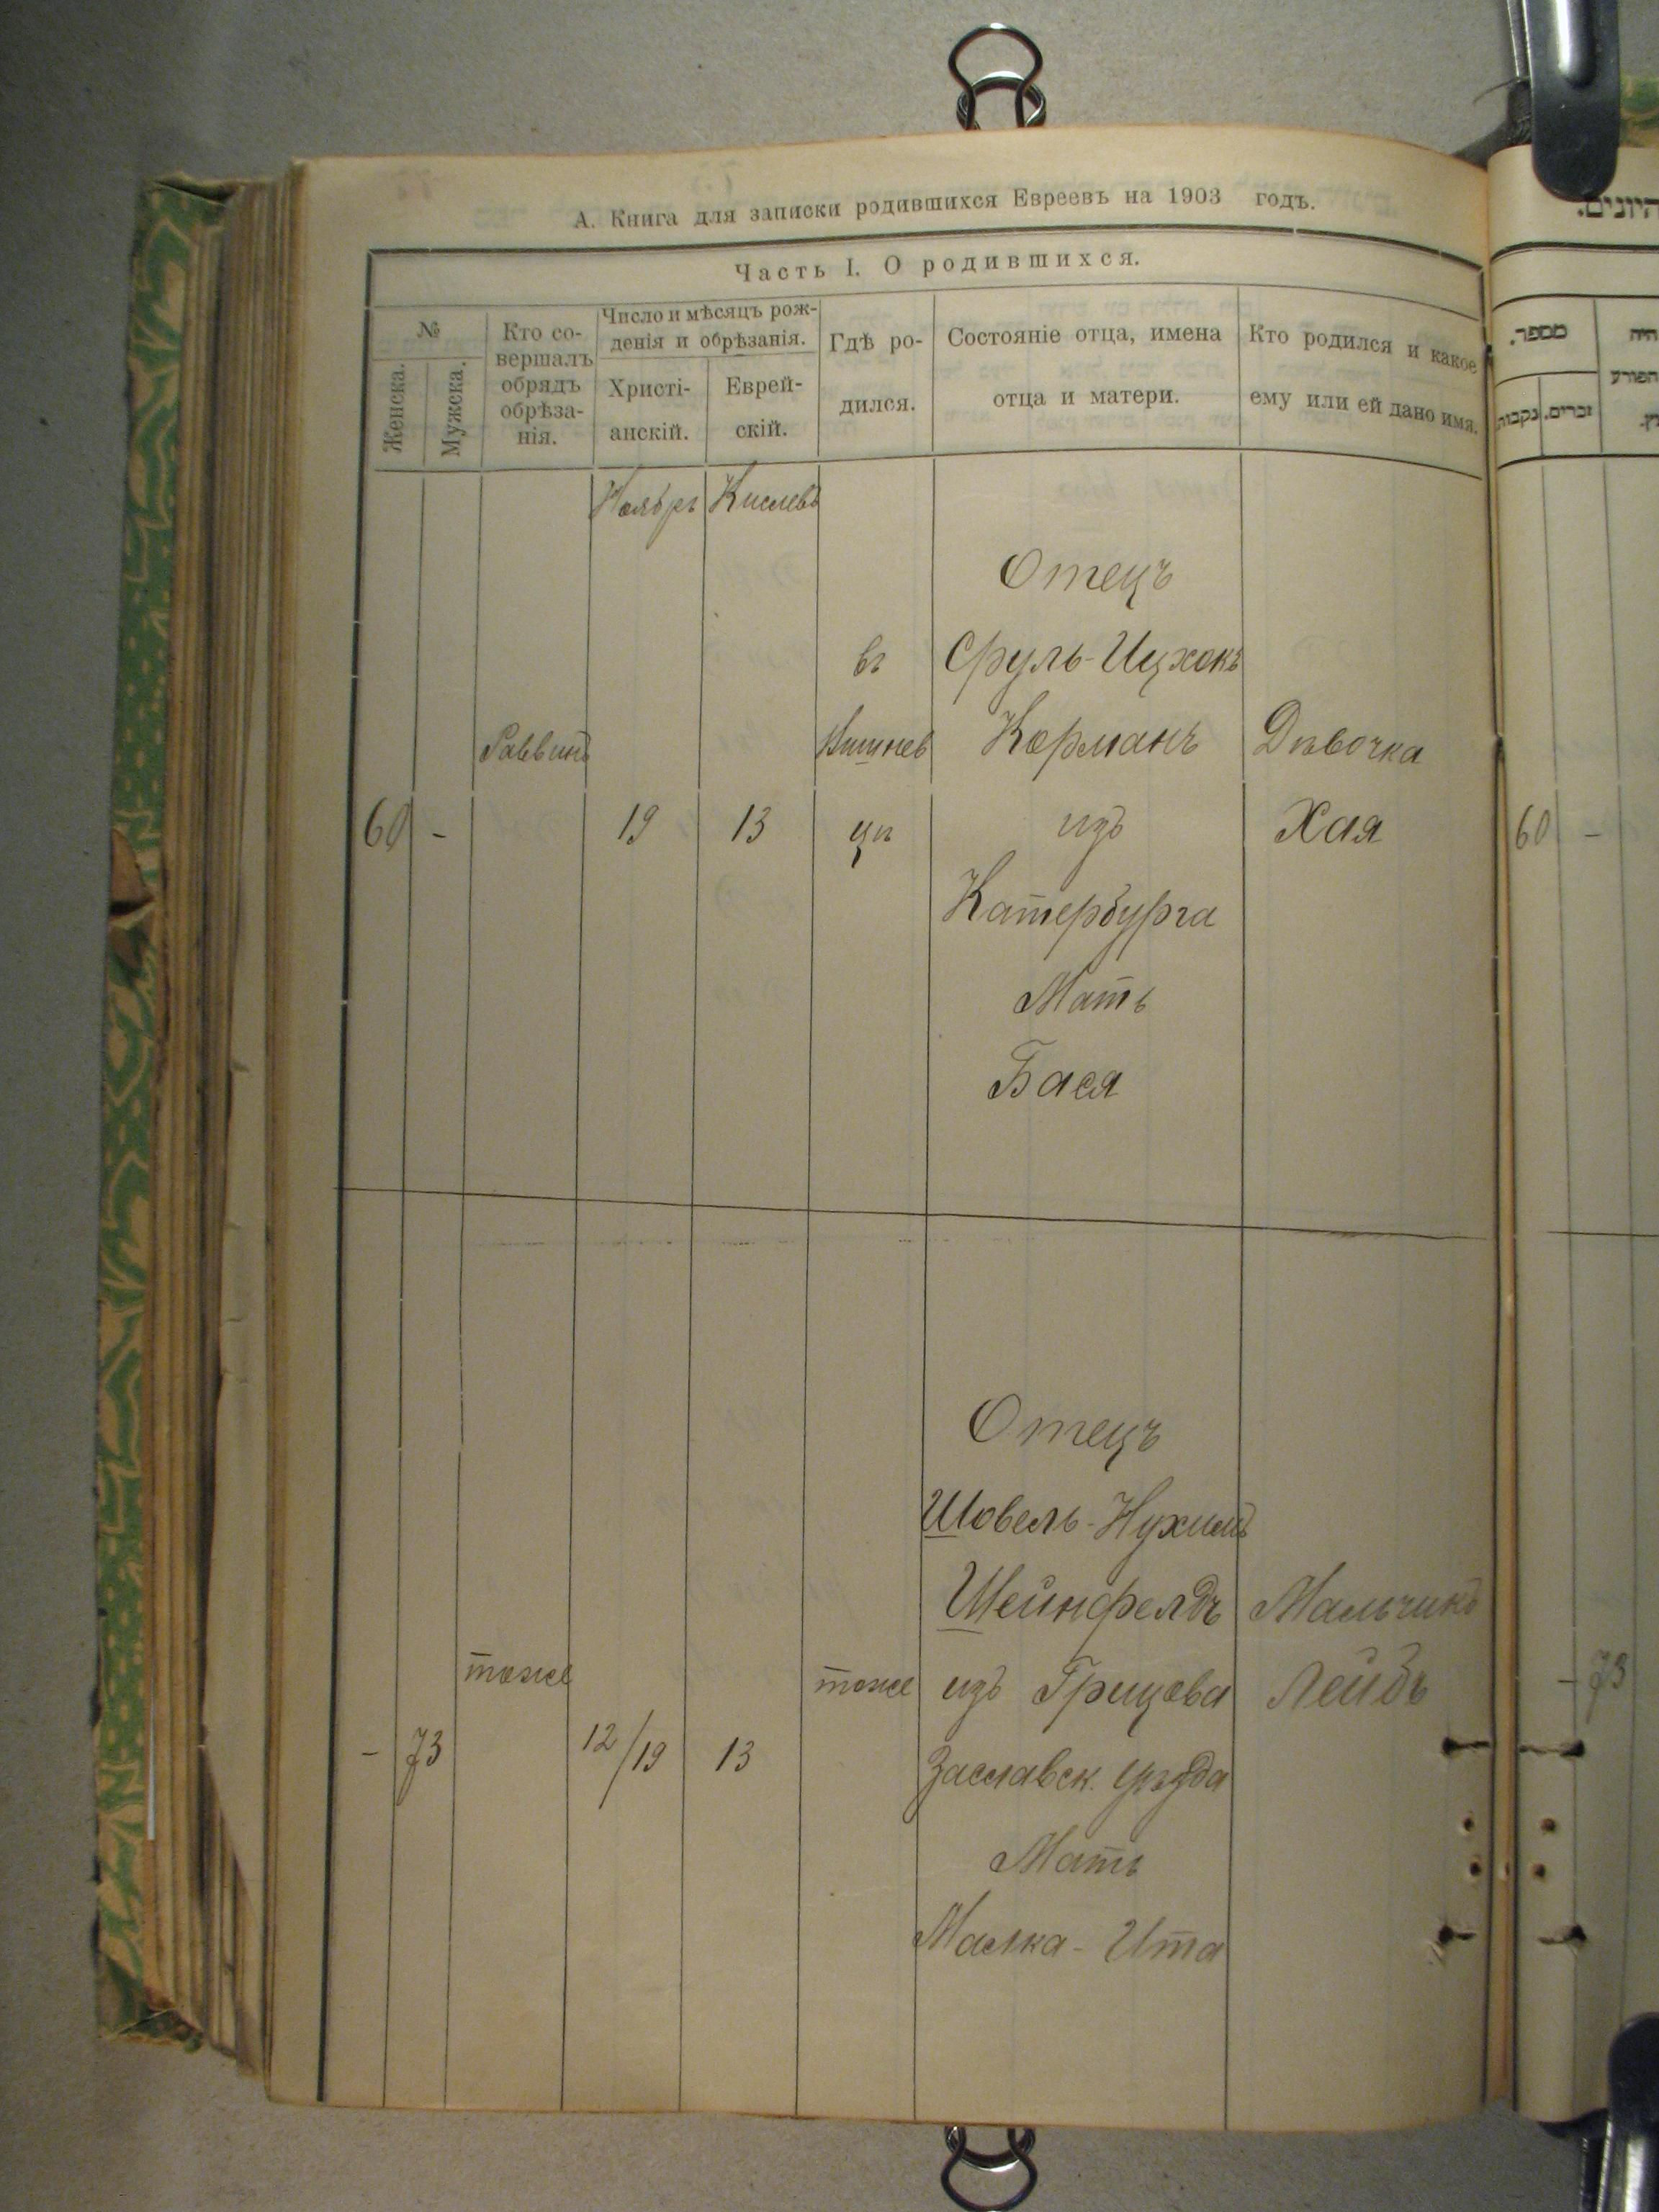 А. Книга для записки родившихся Евреевъ на 1903 годъ.
Часть I. О родившихся.
№
Женска.
Мужска.
Кто со-
вершалъ
обрядъ
обрѣза-
нія.
Число и мѣсяцъ рож-
денія и обрѣзанія.
Христі-
анскій.
Еврей-
скій.
Гдѣ ро-
дился.
Состояніе отца, имена
отца и матери.
Кто родился и какое
ему или ей дано имя.
Ноябрь Кислевъ
Отецъ
въ Сруль-Ицхокъ
Раввинъ Вишнев Корманъ Дѣвочка
60 - 19 13 цѣ изъ Хая
Катербурга
Мать
Бася
Отецъ
Шовель-Нухимъ
Шейнфелдъ Мальчикъ
тоже тоже изъ Грицева Лейбъ
- 73 12/19 13 Заславск. уѣзда
Мать
Малка-Ита
היונים.
מספר.
נקבות
זכרים.
היה
הפורע
60 -
- 73